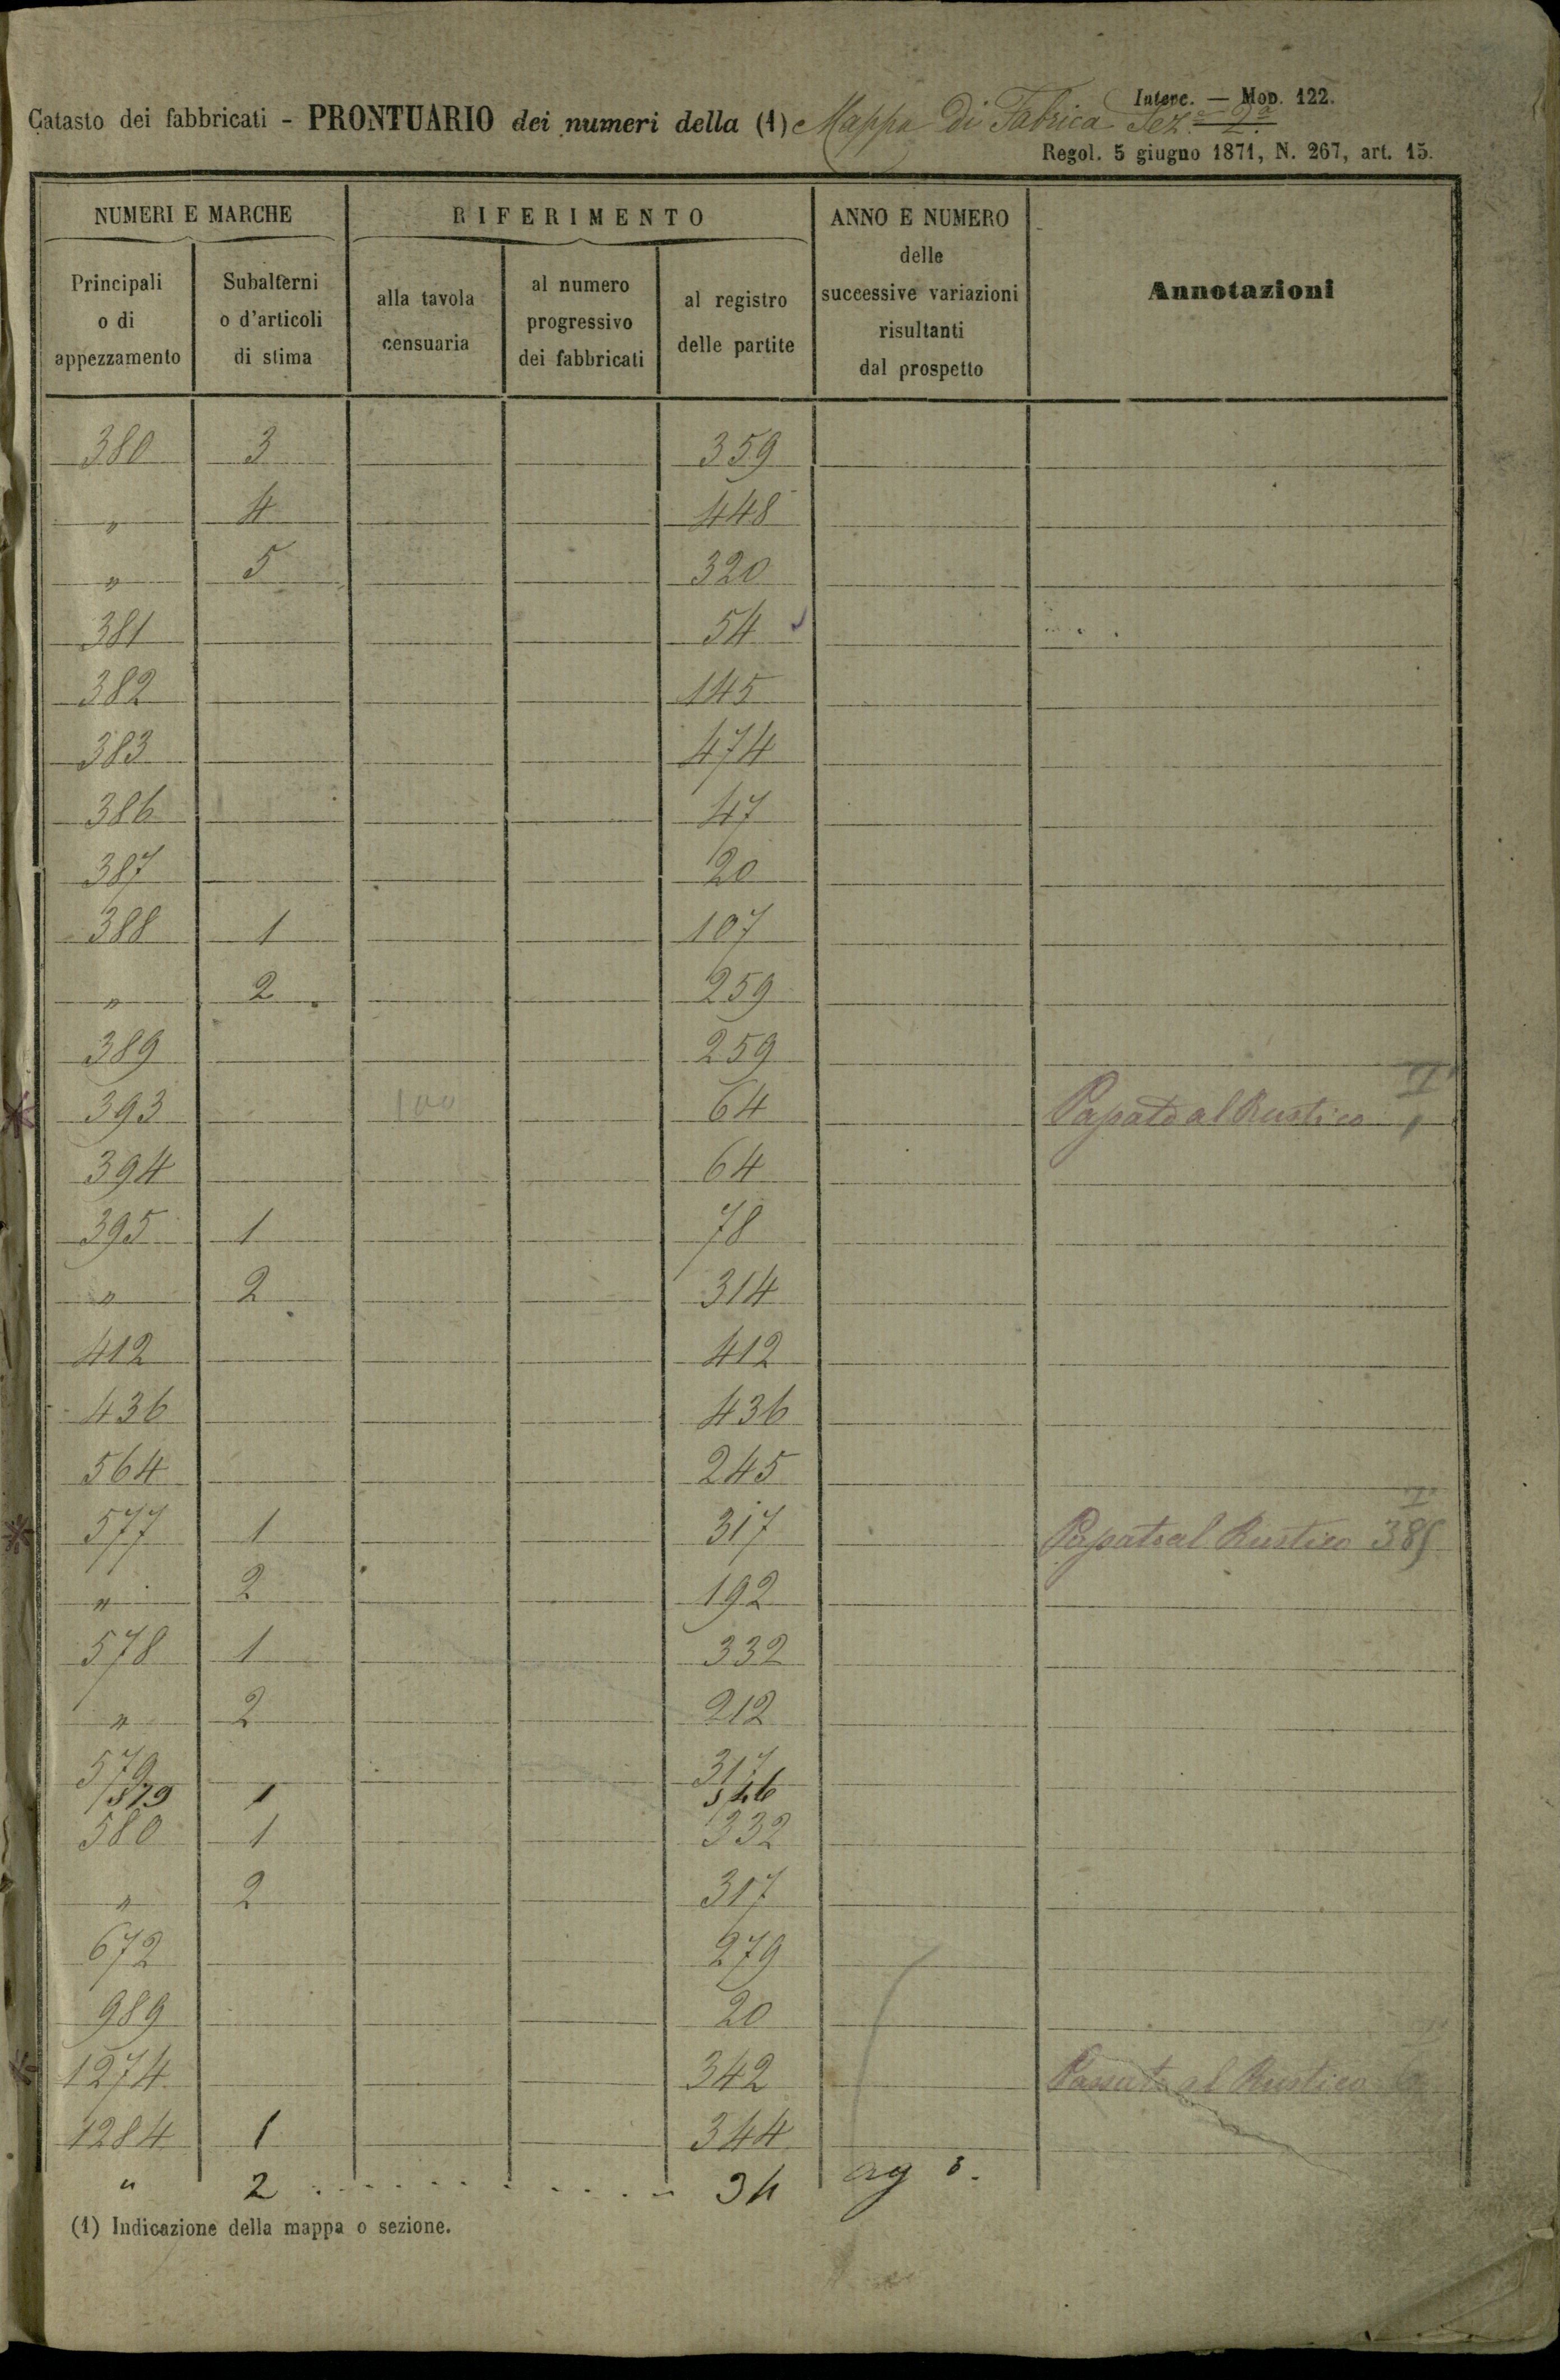 Interc. — Mod. 122.
Catasto dei fabbricati - PRONTUARIO dei numeri della (1) Mappa di Fabrica Sez.e 2a.
Regol. 5 giugno 1871, N. 267, art. 15.
NUMERI E MARCHE RIFERIMENTO ANNO E NUMERO delle successive variazioni risultanti dal prospetto Annotazioni
Principali o di appezzamento Subalterni o d'articoli di stima alla tavola censuaria al numero progressivo dei fabbricati al registro delle partite
380 3 359
" 4 448
" 5 320
381 54
382 145
383 474
386 47
387 20
388 1 107
" 2 259
389 259
393 100 64 Papato al Rustico
394 64
395 1 78
" 2 314
412 412
436 436
564 245
577 1 317 Papato al Rustico 385
" 2 192
578 1 332
" 2 212
579 317
579 1 546
580 1 332
" 2 317
672 279
989 20
1274 342 Passato al Rustico
1284 1 344
" 2 34
(1) Indicazione della mappa o sezione.